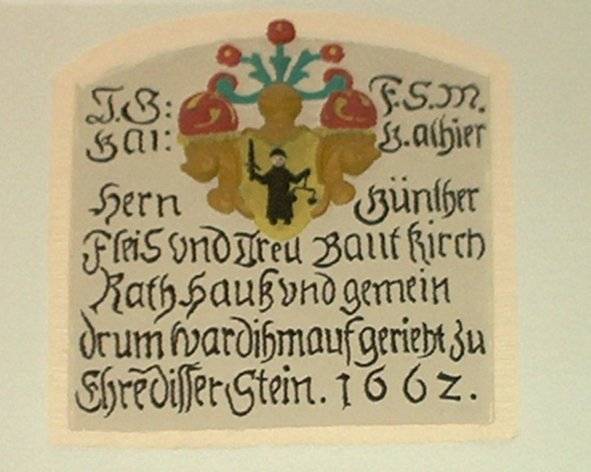 J.G: F.S.M.
Bai: B.athier
Hern Günther
Fleis vnd Treu Baut Kirch
Rath hauß vnd gemein
drum ward ihm auf gericht zu
Ehrē disser Stein. 1662.